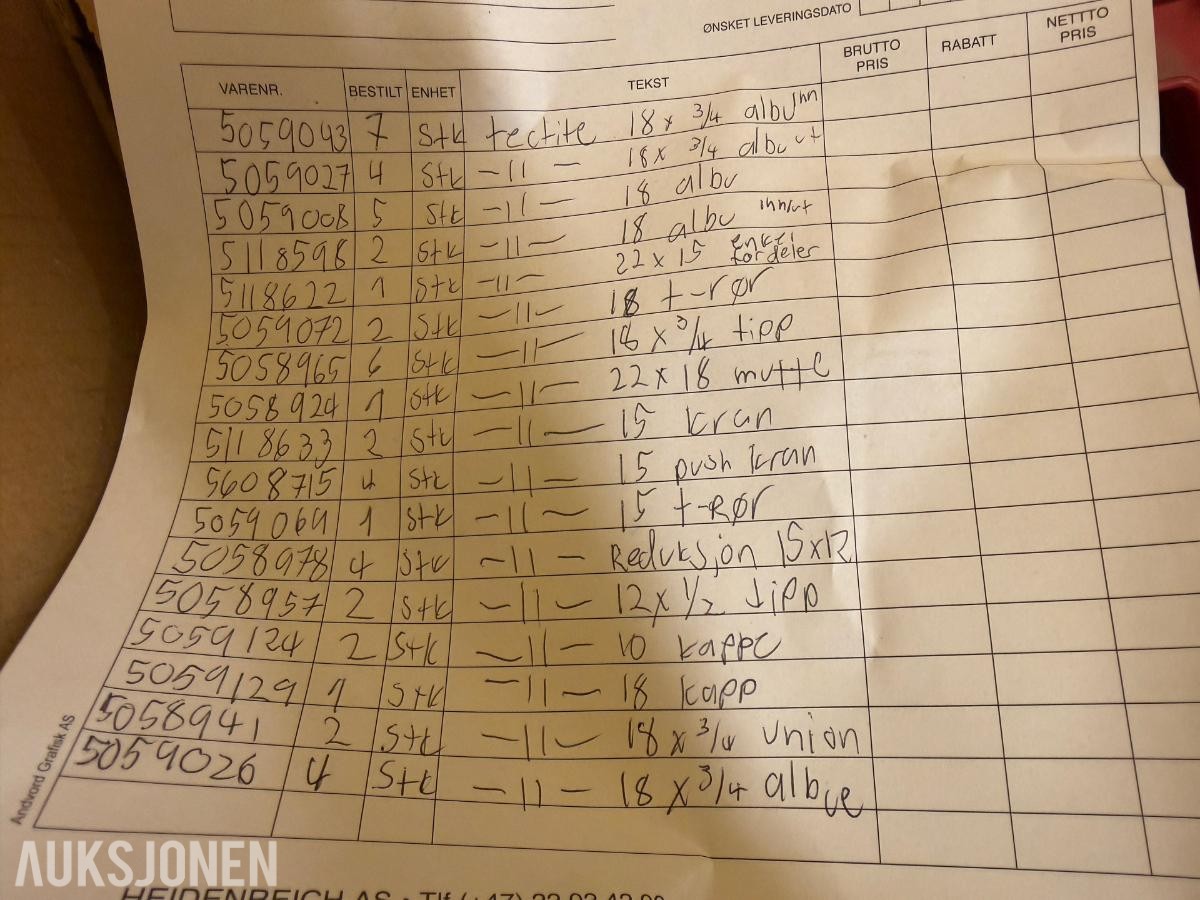 ØNSKET LEVERINGSDATO
VARENR. BESTILT ENHET TEKST BRUTTO PRIS RABATT NETTTO PRIS
5059043 7 Stk tectite 18 x 3/4 albu inn
5059027 4 Stk -11- 18 x 3/4 albu ut
5059008 5 Stk -11- 18 albu
5118598 2 Stk -11- 18 albu inn/ut
5118622 1 Stk -11- 22 x 15 enkel fordeler
5059072 2 Stk -11- 18 t-rør
5058965 6 Stk -11- 18 x 3/4 tipp
5058924 1 Stk -11- 22 x 18 muffe
5118633 2 Stk -11- 15 kran
5608715 4 Stk -11- 15 push kran
5059069 1 Stk -11- 15 t-Rør
5058978 4 Stk -11- Reduksjon 15x12
5058957 2 Stk -11- 12 x 1/2 tipp
5059124 2 Stk -11- 10 kappe
5059129 1 Stk -11- 18 kapp
5058941 2 Stk -11- 18 x 3/4 union
5059026 4 Stk -11- 18 x 3/4 albue
Andvord Grafisk AS
AUKSJONEN
HEIDENREICH AS • Tlf (+47) 22 02 42 00